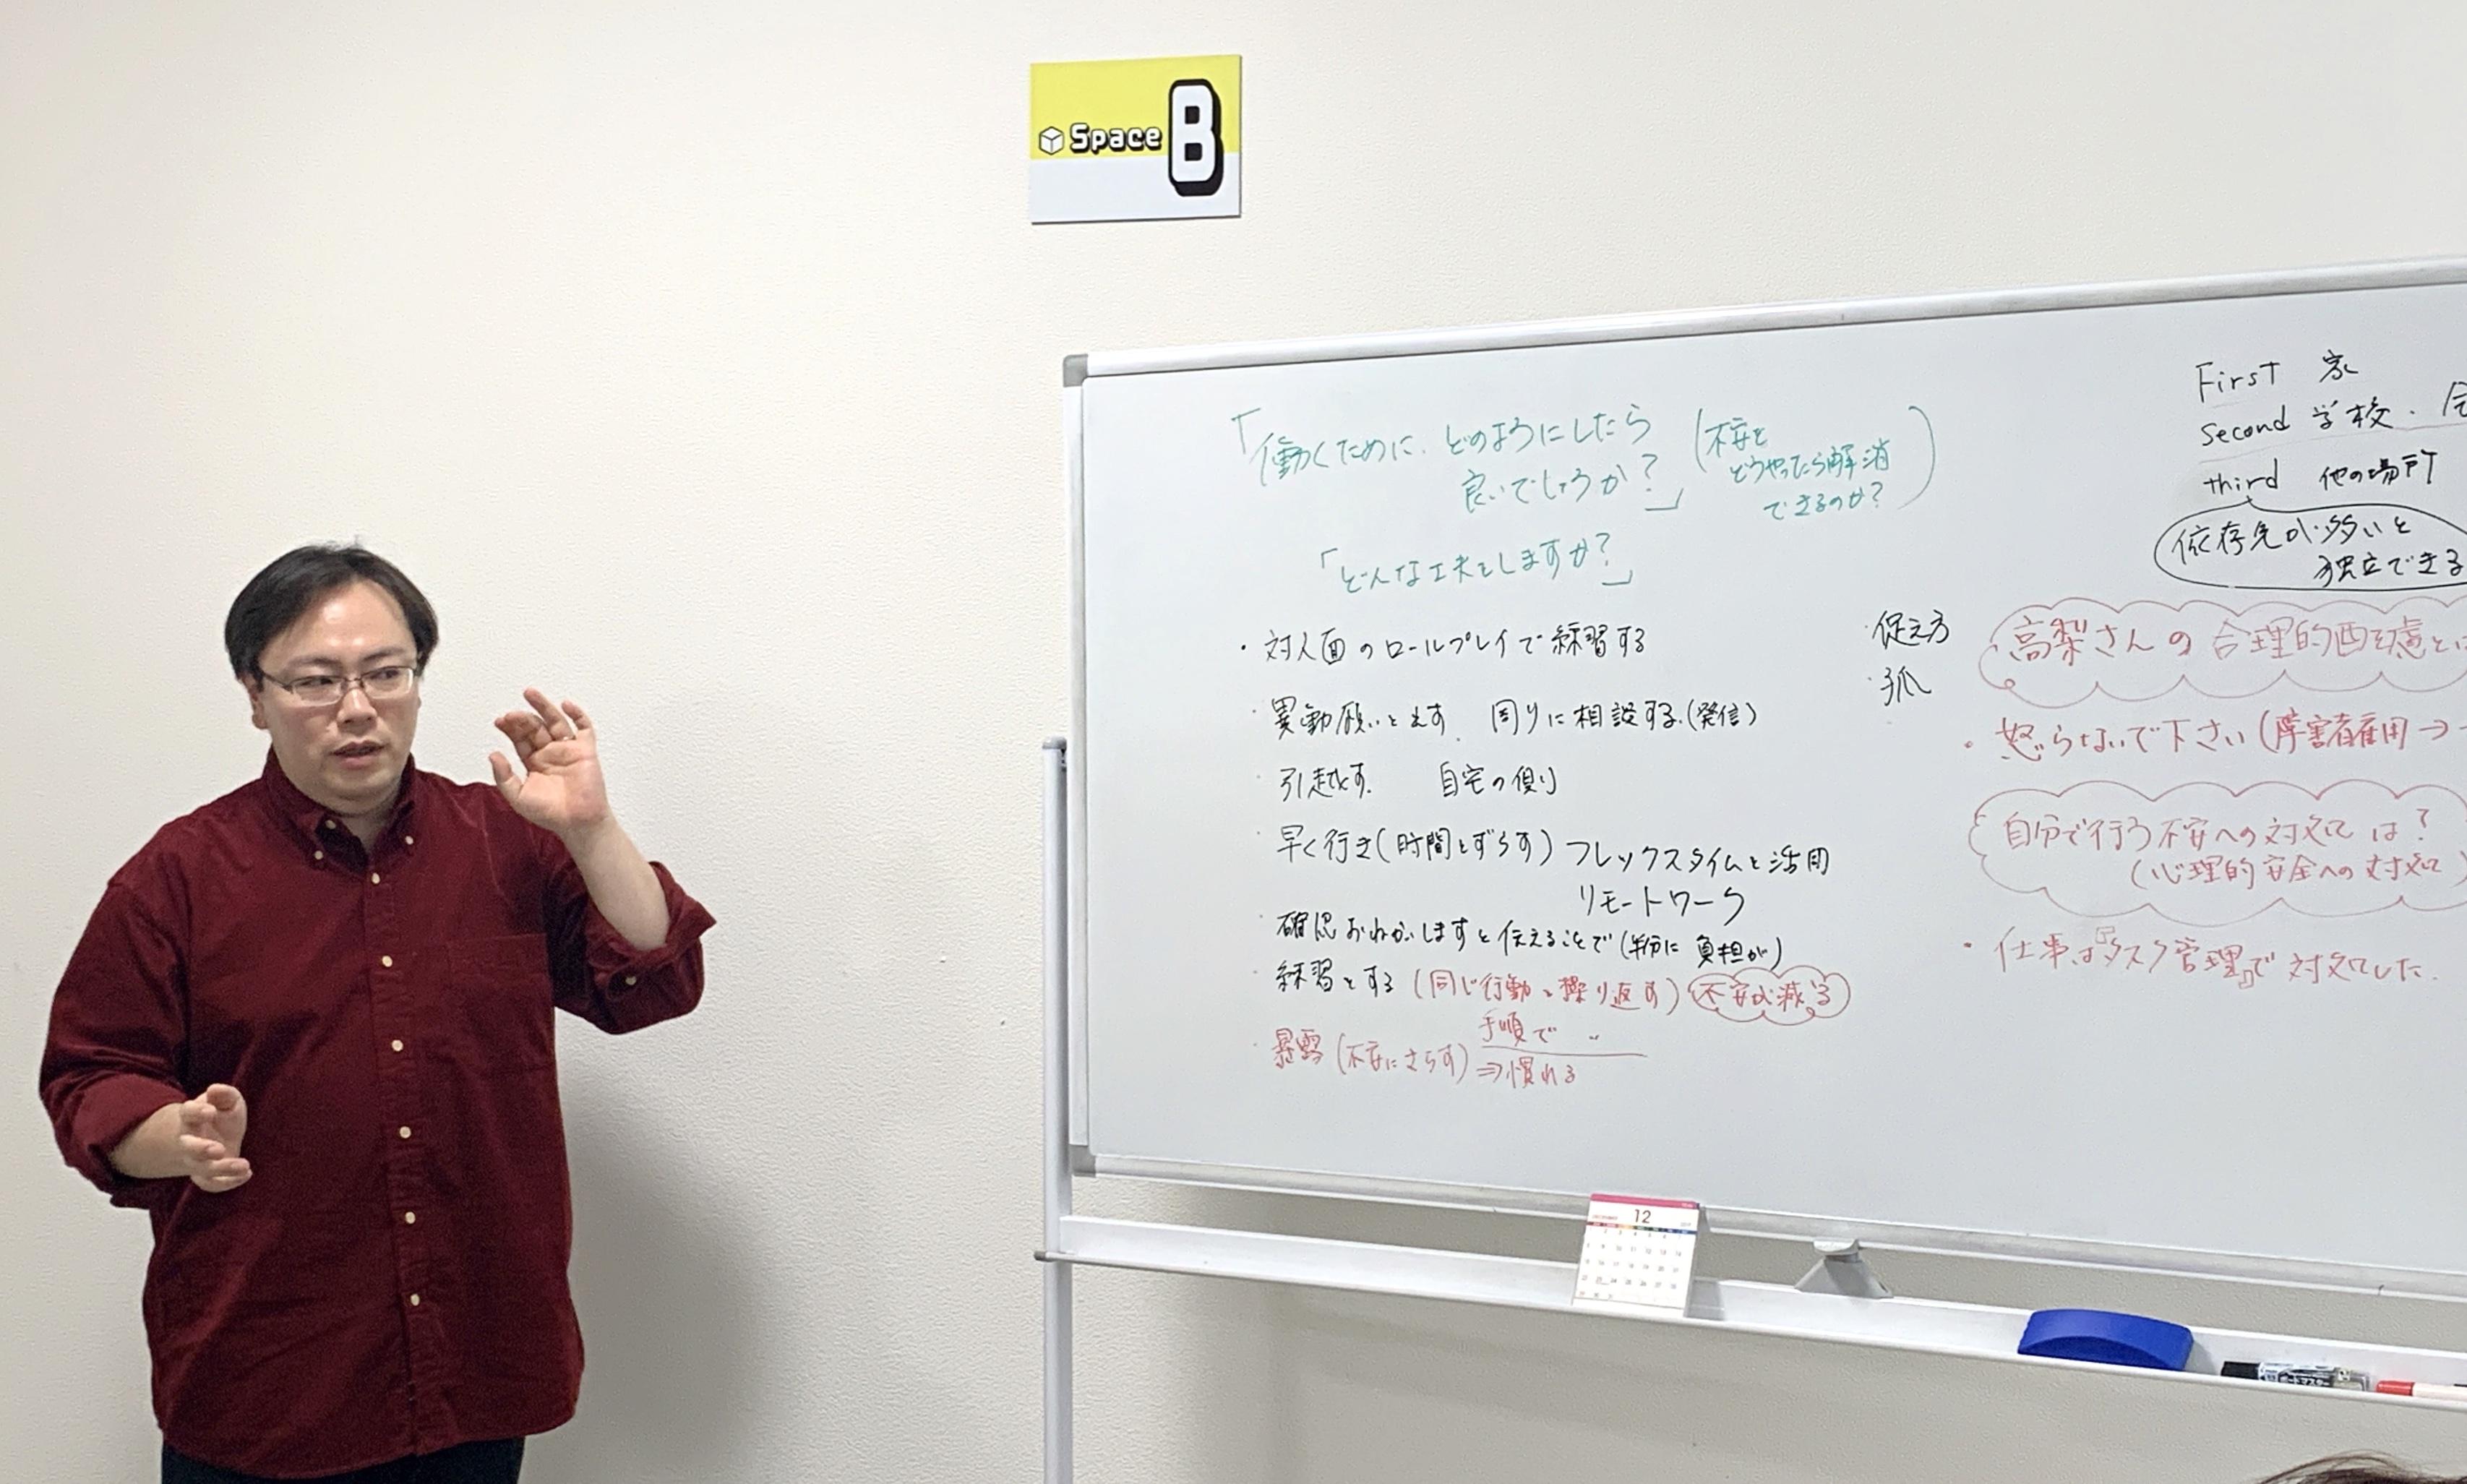 Space B
「働くために、どのようにしたら
良いでしょうか?」
(不安を
どうやったら解消
できるのか?)
「どんな工夫をしますか?」
・対人面のロールプレイで練習する
・異動願いを出す、周りに相談する(発信)
・引越す。 自宅の側り
・早く行き(時間をずらす) フレックスタイムを活用
リモートワーク
・確認おねがいしますと伝えることで(半分に負担が)
・練習をする(同じ行動を繰り返す) 不安が減る
手順で
・暴露(不安にさらす) ⇒慣れる
First 家
second 学校・
third 他の場所
依存先が多いと
独立できる
・捉え方
・孤
高梨さんの合理的配慮とは
・怒らないで下さい(障害者雇用→
自分で行う不安への対処は?
(心理的安全への対処)
・仕事は『タスク管理』で対処した.
12